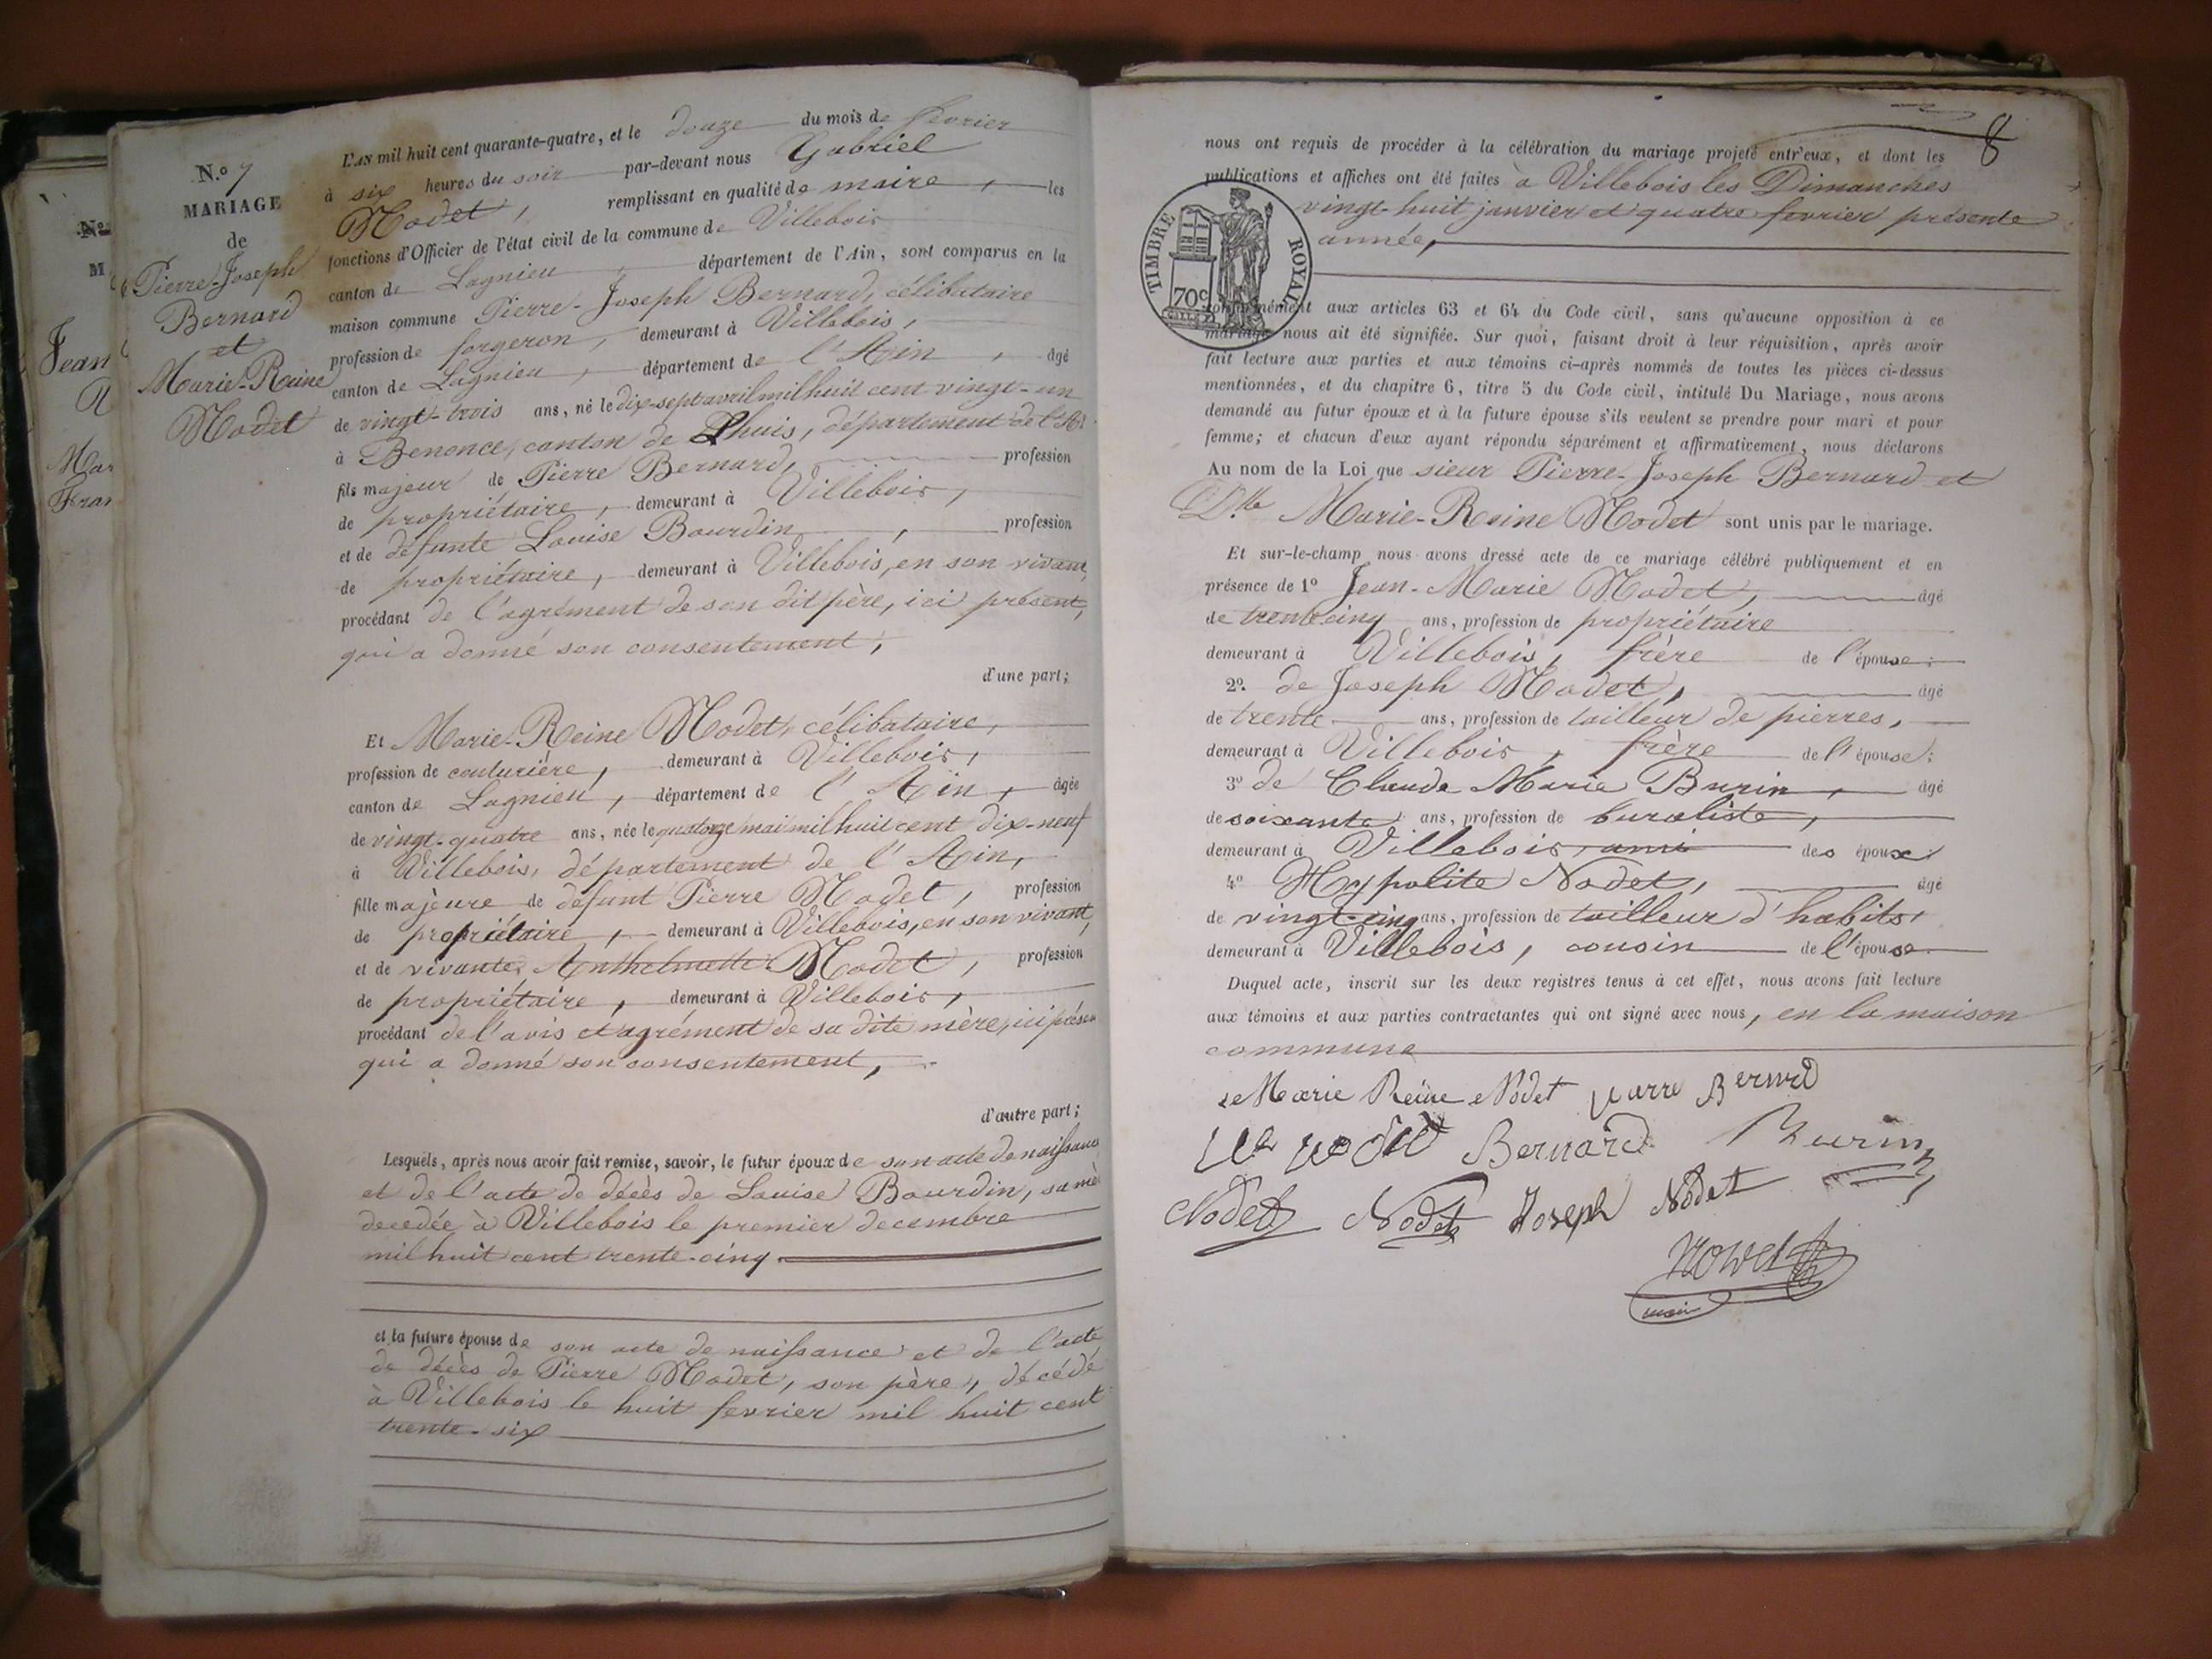 N.o 7
MARIAGE
de
Pierre-Joseph
Bernard
et
Marie-Reine
Nodet
L'AN mil huit cent quarante-quatre, et le douze du mois de fevrier
à six heures du soir par-devant nous Gabriel
Nodet, remplissant en qualité de maire, les
fonctions d'Officier de l'état civil de la commune de Villebois
canton de Lagnieu, département de l'Ain, sont comparus en la
maison commune Pierre-Joseph Bernard, célibataire
profession de forgeron, demeurant à Villebois,
canton de Lagnieu, département de l'Ain, âgé
de vingt-trois ans, né le dix-sept avril mil huit cent vingt-un
à Benonce, canton de Lhuis, département de l'Ain
fils majeur de Pierre Bernard, profession
de propriétaire, demeurant à Villebois,
et de défunte Louise Bourdin, profession
de propriétaire, demeurant à Villebois, en son vivant,
procédant de l'agrément de son dit père, ici présent,
qui a donné son consentement,
d'une part;
Et Marie-Reine Nodet, célibataire,
profession de couturière, demeurant à Villebois,
canton de Lagnieu, département de l'Ain, âgée
de vingt-quatre ans, née le quatorze mai mil huit cent dix-neuf
à Villebois, département de l'Ain,
fille majeure de défunt Pierre Nodet, profession
de propriétaire, demeurant à Villebois, en son vivant,
et de vivante Anthelmette Nodet, profession
de propriétaire, demeurant à Villebois,
procédant de l'avis et agrément de sa dite mère, ici présen
qui a donné son consentement,
d'autre part;
Lesquels, après nous avoir fait remise, savoir, le futur époux de son acte de naissance
et de l'acte de décès de Louise Bourdin, sa mè
decedée à Villebois le premier decembre
mil huit cent trente-cinq
et la future épouse de son acte de naissance et de l'acte
de décès de Pierre Nodet, son père, décédé
à Villebois le huit fevrier mil huit cent
trente-six
8
nous ont requis de procéder à la célébration du mariage projeté entr'eux, et dont les
publications et affiches ont été faites à Villebois les Dimanches
vingt-huit janvier et quatre fevrier présente
année,
TIMBRE ROYAL
70c
conformément aux articles 63 et 64 du Code civil, sans qu'aucune opposition à ce
mariage nous ait été signifiée. Sur quoi, faisant droit à leur réquisition, après avoir
fait lecture aux parties et aux témoins ci-après nommés de toutes les pièces ci-dessus
mentionnées, et du chapitre 6, titre 5 du Code civil, intitulé Du Mariage, nous avons
demandé au futur époux et à la future épouse s'ils veulent se prendre pour mari et pour
femme; et chacun d'eux ayant répondu séparément et affirmativement, nous déclarons
Au nom de la Loi que sieur Pierre-Joseph Bernard et
Dlle Marie-Reine Nodet sont unis par le mariage.
Et sur-le-champ nous avons dressé acte de ce mariage célébré publiquement et en
présence de 1o Jean-Marie Nodet, âgé
de trente cinq ans, profession de propriétaire
demeurant à Villebois, frère de l'épouse:
2o. de Joseph Nodet, âgé
de trente ans, profession de tailleur de pierres,
demeurant à Villebois, frère de l'épouse:
3o de Claude Marie Burin, âgé
de soixante ans, profession de buraliste,
demeurant à Villebois, ami des époux:
4o Hypolite Nodet, âgé
de vingt-cinq ans, profession de tailleur d'habits,
demeurant à Villebois, cousin de l'épouse.
Duquel acte, inscrit sur les deux registres tenus à cet effet, nous avons fait lecture
aux témoins et aux parties contractantes qui ont signé avec nous, en la maison
commune
Marie Reine Nodet Pierre Bernard
Bernard Burin
Nodet Nodet Joseph Nodet
Nodet
maire